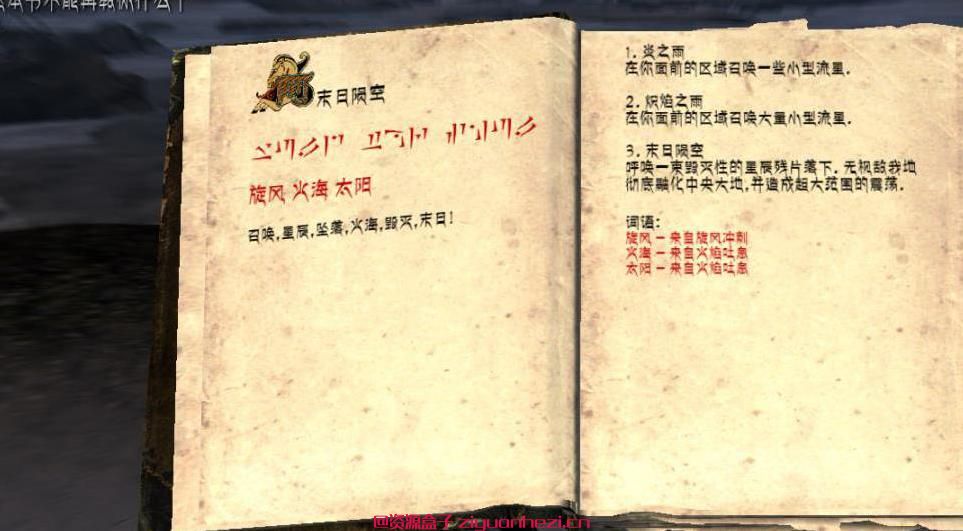 本书不能再教你什么了
末日陨空
旋风 火海 太阳
召唤,星辰,坠落,火海,毁灭,末日!
1. 炎之雨
在你面前的区域召唤一些小型流星.
2. 炽焰之雨
在你面前的区域召唤大量小型流星.
3. 末日陨空
呼唤一束毁灭性的星辰残片落下. 无视敌我地
彻底融化中央大地,并造成超大范围的震荡.
词语:
旋风 - 来自旋风冲刺
火海 - 来自火焰吐息
太阳 - 来自火焰吐息
@资源盒子 ziyuanhezi.cn